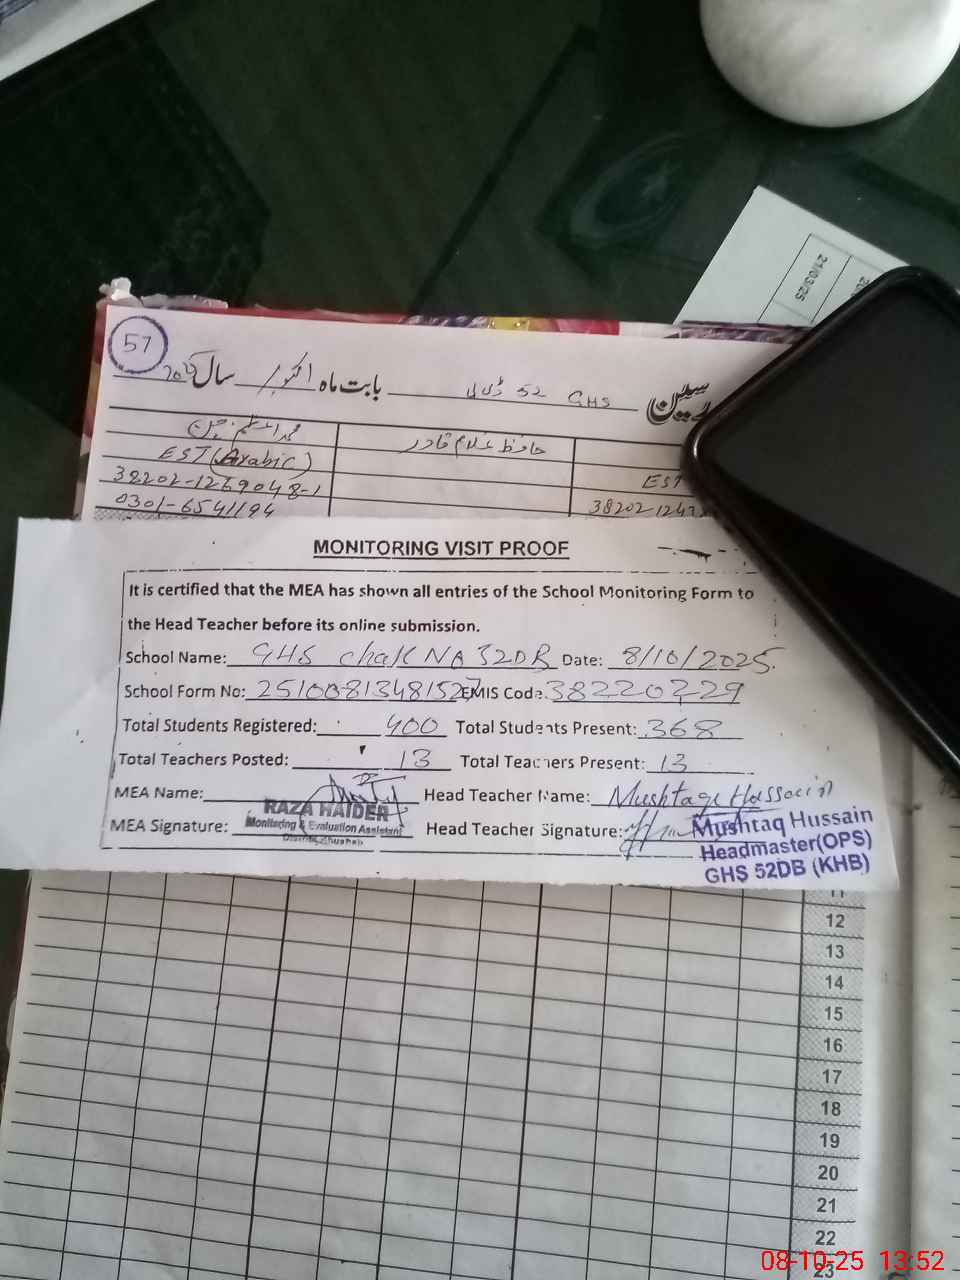 21/03/25
57
سین GHS 52 ڈی بی بابت ماہ اکتوبر سال 2025
حافظ غلام قادر
EST (Arabic)
EST
38202-1269048-1
0301-6541194
MONITORING VISIT PROOF
It is certified that the MEA has shown all entries of the School Monitoring Form to
the Head Teacher before its online submission.
School Name: GHS chak No 52DB Date: 8/10/2025.
School Form No: 25100813481527 EMIS Code: 38220229
Total Students Registered: 400 Total Students Present: 368
Total Teachers Posted: 13 Total Teachers Present: 13
MEA Name: Head Teacher Name: Mushtaq Hussain
RAZA HAIDER
Monitoring & Evaluation Assistant
District Khushab
MEA Signature: Head Teacher Signature:
Mushtaq Hussain
Headmaster(OPS)
GHS 52DB (KHB)
11
12
13
14
15
16
17
18
19
20
21
22
23
08-10-25 13:52